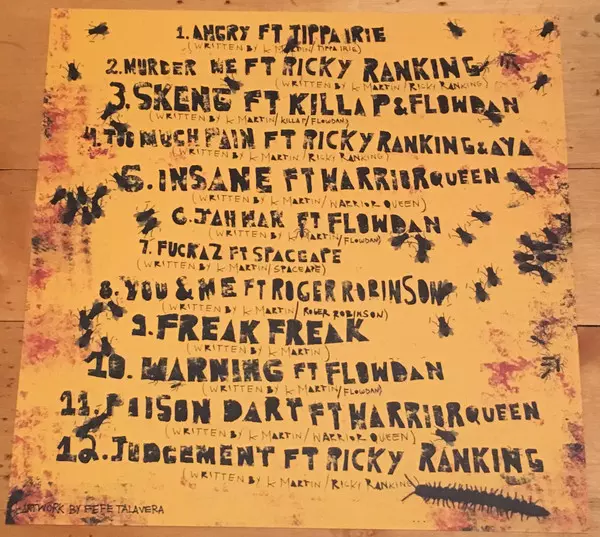 1. ANGRY FT TIPPA IRIE
(WRITTEN BY K MARTIN/TIPPA IRIE)
2. MURDER WE FT RICKY RANKING
(WRITTEN BY K MARTIN/RICKY RANKING)
3. SKENG FT KILLA P & FLOWDAN
(WRITTEN BY K MARTIN/KILLA P/FLOWDAN)
4. TOO MUCH PAIN FT RICKY RANKING & AYA
(WRITTEN BY K MARTIN/RICKY RANKING)
5. INSANE FT WARRIOR QUEEN
(WRITTEN BY K MARTIN/WARRIOR QUEEN)
6. JAH WAR FT FLOWDAN
(WRITTEN BY K MARTIN/FLOWDAN)
7. FUCKAZ FT SPACEAPE
(WRITTEN BY K MARTIN/SPACEAPE)
8. YOU & ME FT ROGER ROBINSON
(WRITTEN BY K MARTIN/ROGER ROBINSON)
9. FREAK FREAK
(WRITTEN BY K MARTIN)
10. WARNING FT FLOWDAN
(WRITTEN BY K MARTIN/FLOWDAN)
11. POISON DART FT WARRIOR QUEEN
(WRITTEN BY K MARTIN/WARRIOR QUEEN)
12. JUDGEMENT FT RICKY RANKING
(WRITTEN BY K MARTIN/RICKY RANKING)
ARTWORK BY FEFE TALAVERA